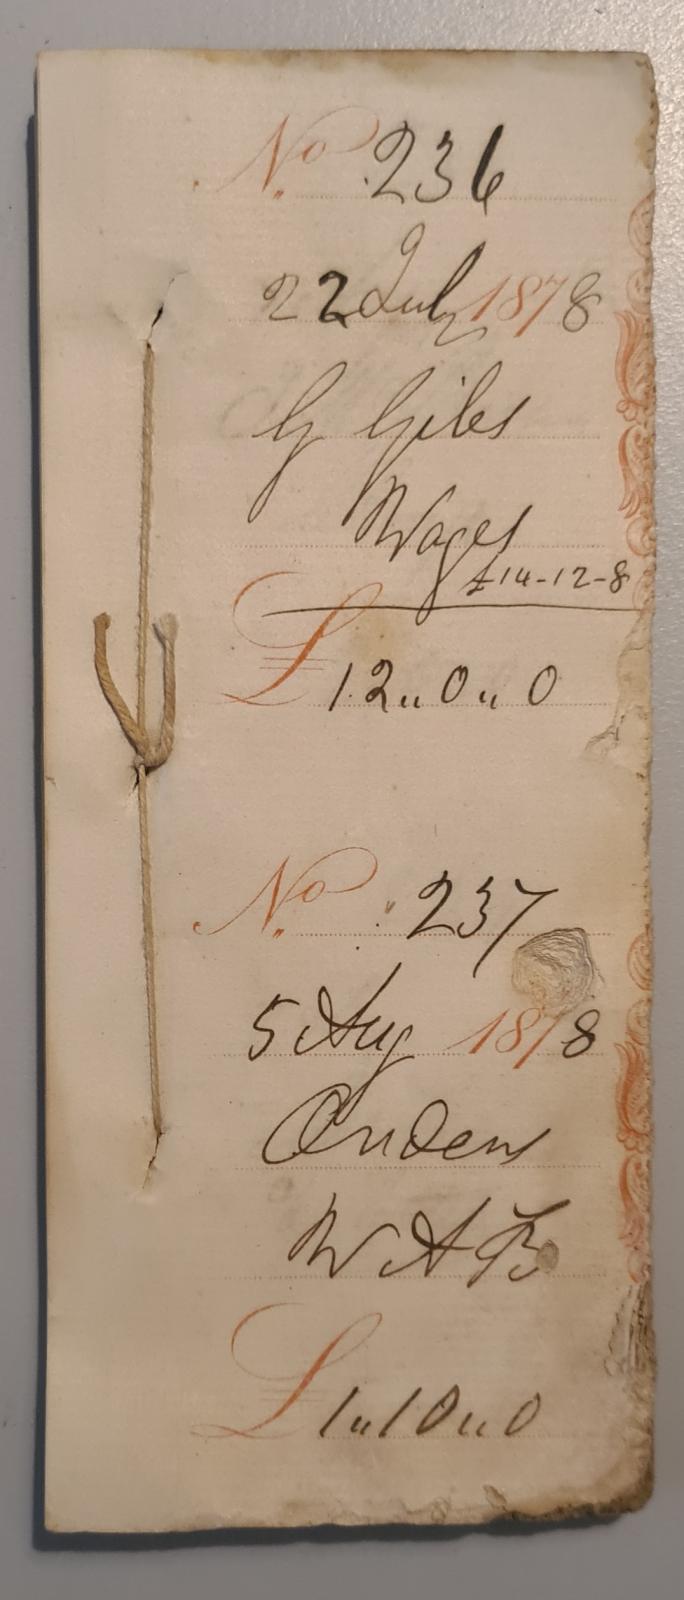 No 236
22 July 1878
G Giles
Wages
£14-12-8
£12 " 0 " 0
No 237
5 Aug 1878
W A B
£1 " 10 " 0